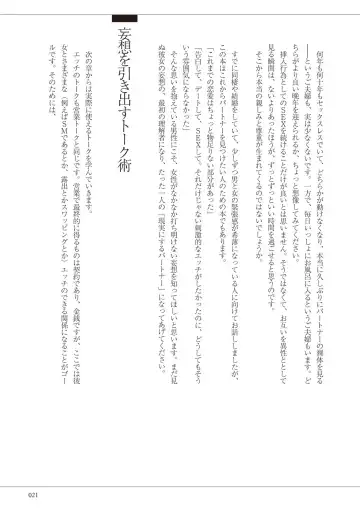 何年も何十年もセックスレスでいて、どちらかが動けなくなり、本当に久しぶりにパートナーの裸体を見る
――というご夫婦も、実は少なくないです。一方、毎日いっしょにお風呂に入るというご夫婦もいます。ど
ちらがより良い晩年を迎えられるか、ちょっと想像してみてください。
挿入行為としてのSEXを続けることだけが良いとは思いません。そうではなくて、お互いを異性として
見る瞬間は、ないよりあったほうが、ずっとずっといい時間を過ごせると思うのです。
そこから本当の親しみと尊重が生まれてくるのではないでしょうか。
すでに同棲や結婚をしていて、少しずつ男と女の緊張感が希薄になっている人に向けてお話ししましたが、
この本はこれからパートナーを見つけたい人のための本でもあります。
「これまでの恋愛はちょっと物足りない部分があった」
「告白して、デートして、SEXして、それだけじゃない刺激的なエッチがしたかったのに、どうしてもそう
いう雰囲気にならなかった」
そんな思いを抱えている男性にこそ、女性がなかなか打ち明けない妄想を知ってほしいと思います。まだ見
ぬ彼女の妄想の、最初の理解者になり、たった一人の「現実にするパートナー」になってあげてください。
妄想を引き出すトーク術
次の章からは実際に使えるトークを学んでいきます。
エッチのトークも営業トークと同じです。営業で最終的に得るものは契約であり、金銭ですが、ここでは彼
女とさまざまな（例えばSMであるとか、露出とかスワッピングとか）エッチのできる関係になることがゴー
ルです。そのためには、
021